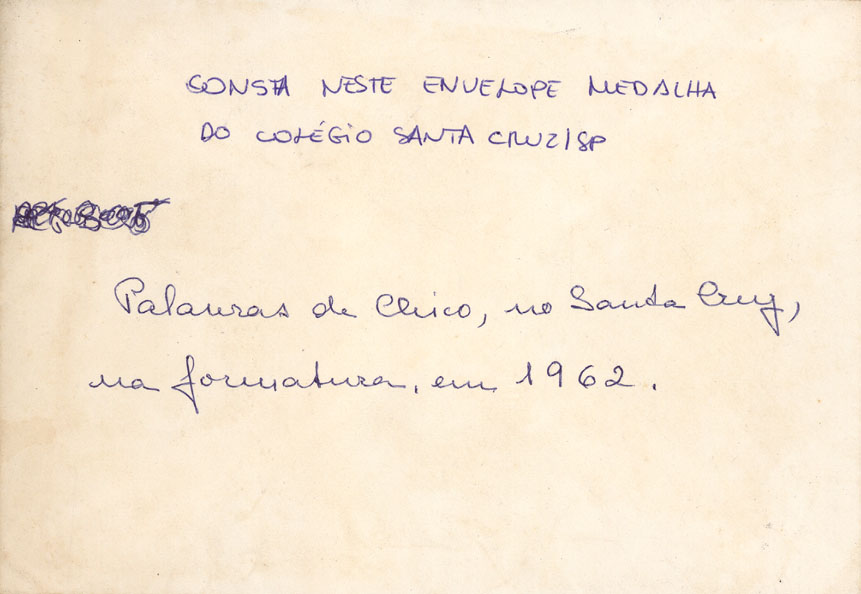 CONSTA NESTE ENVELOPE MEDALHA
DO COLÉGIO SANTA CRUZ/SP
Palavras de Chico, no Santa Cruz,
na formatura, em 1962.